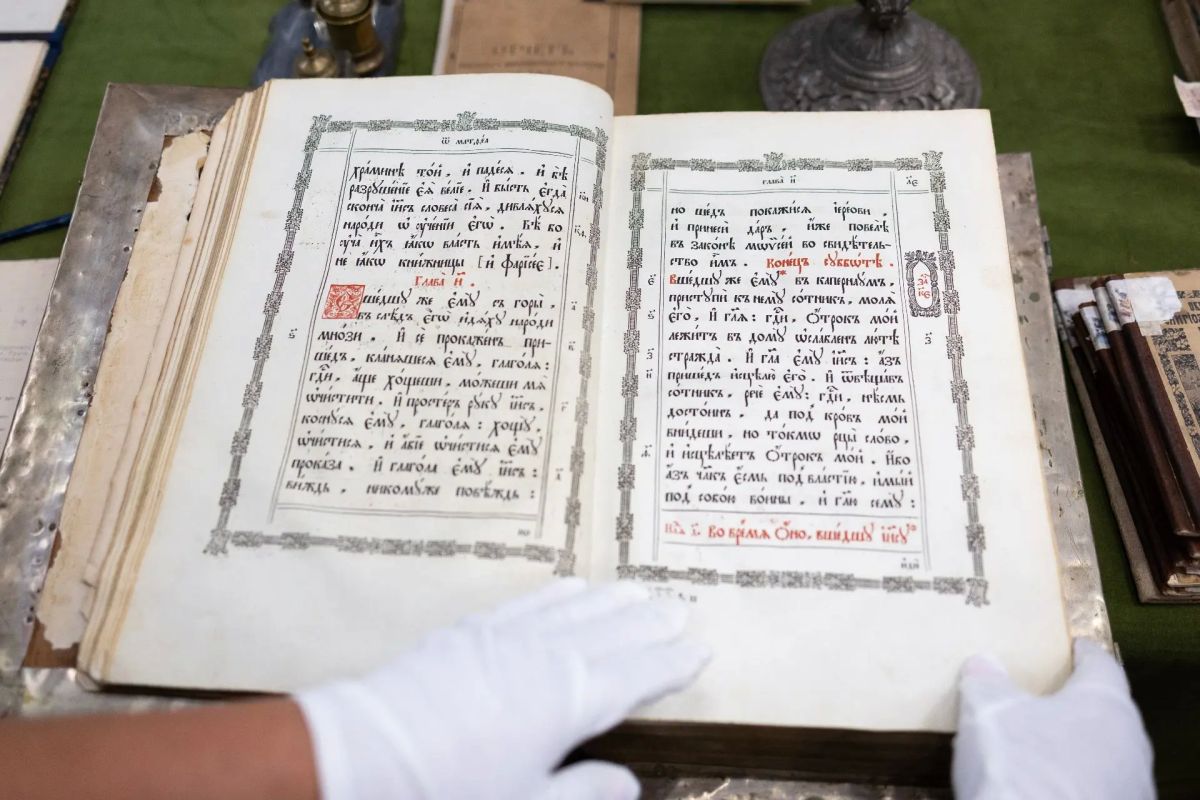 ОТЧЕТЪ
Ѿ матѳеа
хра́минѣ то́й , и҆ паде́сѧ . и҆ бѣ̀
разруше́нїе є҆ѧ̀ ве́лїе . И҆ бы́сть є҆гда̀
сконча̀ і҆и҃съ словеса̀ сїѧ̑ , дивлѧ́хусѧ
наро́ди ѡ҆ ᲂу҆че́нїи є҆гѡ̀ . Бѣ́ бо
ᲂу҆ча̀ и҆̀хъ ꙗ҆́кѡ вла́сть и҆мѣ́ѧ , и҆
не ꙗ҆́кѡ кни́жницы [ и҆ фарїсе́є ] .
Глава̀ и҃ .
Сше́дшу же є҆мꙋ̀ съ горы̀ ,
въ слѣ́дъ є҆гѡ̀ и҆дѧ́ху наро́ди
мно́зи . И҆ сѐ прокаже́нъ при-
ше́дъ , кла́нѧшесѧ є҆мꙋ̀ , глаго́лѧ :
гд҇и , а҆́ще хо́щеши , мо́жеши мѧ̀
ѡ҆чи́стити . И҆ просте́ръ рꙋ́кꙋ і҆и҃съ ,
коснꙋ́сѧ є҆мꙋ̀ , глаго́лѧ : хощꙋ̀ ,
ѡ҆чи́стисѧ . и҆ а҆́бїе ѡ҆чи́стисѧ є҆мꙋ̀
прока́за . И҆ глаго́ла є҆мꙋ̀ і҆и҃съ :
ви́ждь , никомꙋ́же повѣ́ждь :
но
глава̀ и҃
л҃є
но ше́дъ покажи́сѧ і҆ере́ови ,
и҆ принесѝ да́ръ , и҆́же повелѣ̀
въ зако́нѣ мѡѷсе́й во свидѣ́тель-
ство и҆̀мъ . Коне́цъ сꙋббѡ́тѣ .
Вше́дшꙋ же є҆мꙋ̀ въ капернаꙋ́мъ ,
пристꙋпѝ къ немꙋ̀ со́тникъ , молѧ̀
є҆го̀ , и҆ гл҃ѧ : гд҇и , ѻ҆́трокъ мо́й
лежи́тъ въ домꙋ̀ ѡ҆сла́бленъ лю́тѣ
стра́жда . И҆ гл҃а є҆мꙋ̀ і҆и҃съ : а҆́зъ
прише́дъ и҆сцѣлю̀ є҆го̀ . И҆ ѿвѣща́въ
со́тникъ , речѐ є҆мꙋ̀ : гд҇и , нѣ́смь
досто́инъ , да под̾ кро́въ мо́й
вни́деши , но то́кмѡ рцы̀ сло́во ,
и҆ и҆сцѣлѣ́етъ ѻ҆́трокъ мо́й . И҆́бо
а҆́зъ чл҃къ є҆́смь под̾ вла́стїю , и҆мы́й
под̾ собо́ю во́ины , и҆ гл҃ю семꙋ̀ :
Во вре́мѧ ѻ҆́но , вше́дшꙋ і҆и҃сꙋ
и҆ди